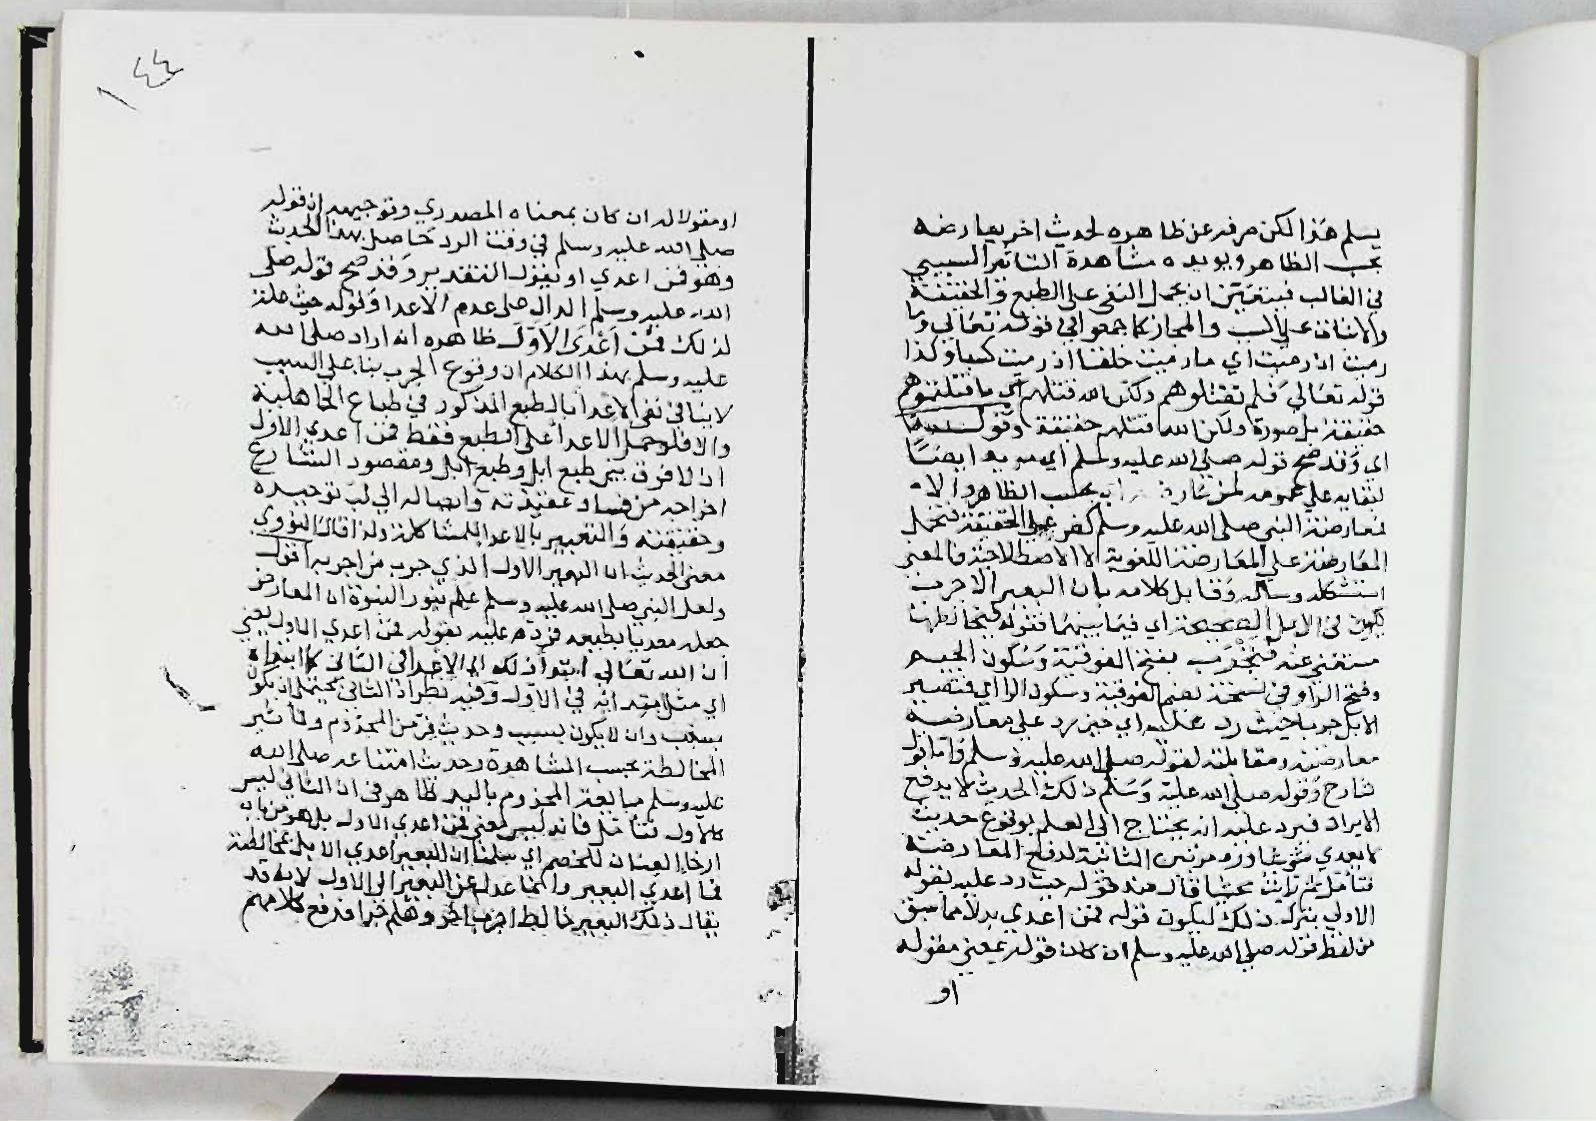 يسلم هذا لكن صرفه عن ظاهره لحديث اخر يعارضه
بحسب الظاهر ويويده مشاهدة التاثير السببي
في الغالب فيتعين ان يحمل النفي على الطبع والحقيقة
والاثبات على السبب والمجاز كما جمعوا في قوله تعالى وما
رميت اذ رميت اي ما رميت خلقا اذ رميت كسبا وكذا
قوله تعالى فلم تقتلوهم ولكن الله قتلهم اي ما قتلتموهم
حقيقة بل صورة ولكن الله قتلهم حقيقة وقوله
اى وقد صح قوله صلى الله عليه وسلم اي مويد ايضا
لبقايه على عمومه لمن عارضه بحسب الظاهر والا
فمعارضة النبي صلى الله عليه وسلم كفر على الحقيقة فتحمل
المعارضة على المعارضة اللغوية لا الاصطلاحية فالمعنى
استشكله وساله وقابل كلامه بان البعير الاجرب
يكون في الابل الصحيحة اي فيما بينهما فقوله فيخالطها
مستغنى عنه فتجرب بفتح الفوقية وسكون الجيم
وفتح الراء وفي نسخة بضم الفوقية وسكون الراء اي فتصير
الابل جربا حيث رد عليه اي حين رد على معارضه
معارضته ومقابلته لقوله صلى الله عليه وسلم واما قول
شارح وقوله صلى الله عليه وسلم ذلك الحديث لا يدفع
الايراد فيرد عليه انه يحتاج الى العلم بوقوع حديث
لا يعدي شيء شيا ورد مرتين الثانية لدفع المعارضة
فتامل ثم رايت محشيا قال عند قوله حيث رد عليه بقوله
الاولى بترك ذلك ليكون قوله فمن اعدي بدلا مما سبق
من لفظ قوله صلى الله عليه وسلم ان كان قوله بمعنى مقوله
او
١٤٤
او مقولا له ان كان بمعناه المصدري وتوجيهه ان قوله
صلى الله عليه وسلم في وقت الرد حاصل بهذا الحديث
وهو فمن اعدي او بقول التقدير وقد صح قوله صلى
الله عليه وسلم الدال على عدم الاعدا وقوله حيث علته
لذلك فمن اعدى الاول ظاهره انه اراد صلى الله
عليه وسلم بهذا الكلام ان وقوع الجرب بنا على السبب
لا ينافي نفي الاعدا بالطبع المذكور في طباع الجاهلية
والا فلو حمل الاعدا على الطبع فقط فمن اعدي الاول
اذ لا فرق بين طبع ابل وطبع ابل ومقصود الشارع
اخراجه من فساد عقيدته وايصاله الى لب توحيده
وحقيقته والتعبير بالاعدا للمشاكلة ولذا قال النووي
معنى الحديث ان البعير الاول الذي جرب من اجربه اقول
ولعل النبي صلى الله عليه وسلم علم بنور النبوة ان المعارض
جعله معديا بطبعه فرده عليه بقوله فمن اعدي الاول يعني
ان الله تعالى ابتدا ذلك الى الاعدا في الثاني كما ابتداه
اي مثل ابتدايه في الاول وفيه نظر اذ الثاني يحتمل ان يكون
بسبب وان لا يكون بسبب وحديث فر من المجذوم وتاثير
المخالطة بحسب المشاهدة وحديث امتناعه صلى الله
عليه وسلم مبايعة المجذوم باليد ظاهر في ان الثاني ليس
كالاول فتامل فانه ليس معنى فمن اعدي الاول بل هو من باب
ارخا العنان للخصم اي سلمنا ان البعير اعدي الابل بمخالطته
فما اعدي البعير وانما عدل عن البعير الى الاول لانه قد
يقال ذلك البعير خالط اجرب اخر وهلم جرا فدفع كلامهم